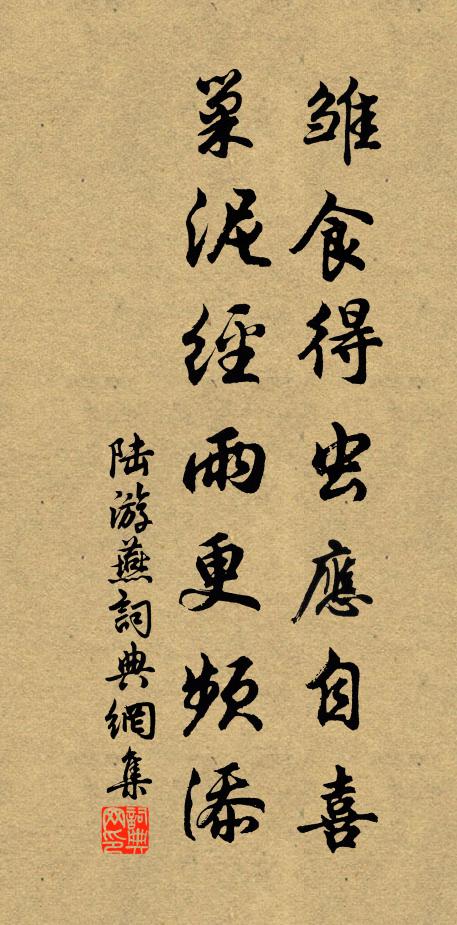 雛食得虫應自喜
巢泥經雨更頻添
陆游燕詞典網集
詞典网印